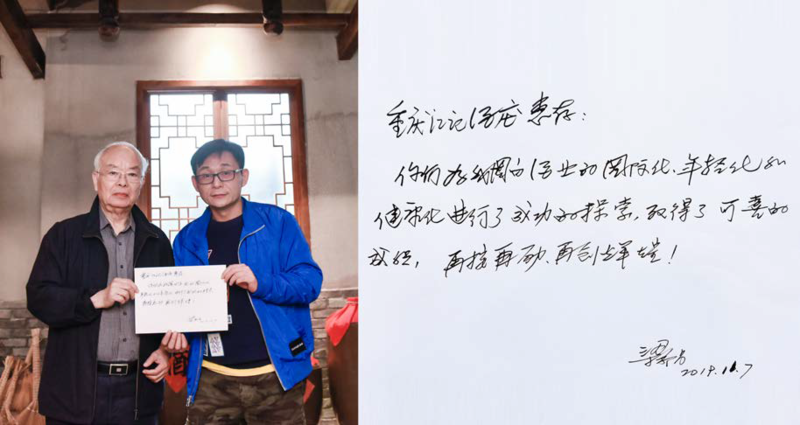 重庆江记酒庄惠存：
你们为我国白酒业的国际化、年轻化和
健康化进行了成功的探索，取得了可喜的
成绩，再接再励、再创辉煌！
2019.11.7
酒